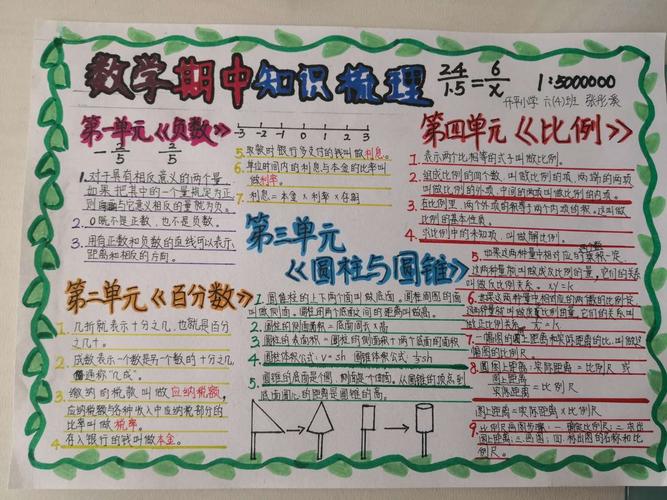 数学期中知识梳理
24/1.5=6/x
1:5000000
六(4)班
第一单元《负数》
-2/5 2/5
-3 -2 -1 0 1 2 3
1.对于具有相反意义的两个量,
如果把其中的一个量规定为正
则与它意义相反的量就为负。
2.0既不是正数,也不是负数。
3.用有正数和负数的直线可以表示
距离和相反的方向。
第二单元《百分数》
1.几折就表示十分之几,也就是百分
之几十。
2.成数表示一个数是另一个数的十分之几,
通称“几成”。
3.缴纳的税款叫做应纳税额,
应纳税额与各种收入中应纳税部分的
比率叫做税率。
4.存入银行的钱叫做本金。
5.取款时银行多支付的钱叫做利息。
6.单位时间内的利息与本金的比率叫
做利率。
7.利息=本金×利率×存期
第三单元
《圆柱与圆锥》
1.圆柱的上下两个面叫做底面。圆柱周围的面
叫做侧面。圆柱的两个底面之间的距离叫做高。
2.圆柱的侧面面积=底面周长×高
3.圆柱的表面积=圆柱的侧面积+两个底面的面积
4.圆柱体积公式:V=sh 圆锥体积公式:1/3sh
5.圆锥的底面是个圆,侧面是一个曲面,从圆锥的顶点到
底面圆心的距离是圆锥的高。
第四单元《比例》
1.表示两个比相等的式子叫做比例。
2.组成比例的四个数,叫做比例的项,两端的两项
叫做比例的外项,中间的两项叫做比例的内项。
3.在比例里,两个外项的积等于两个内项的积。这叫做
比例的基本性质。
4.求比例中的未知项,叫做解比例。
5.如果这两种量中相对应的两个数的乘积一定,
这两种量就叫做成反比例的量,它们的关系
叫做反比例关系。xy=k
6.如果这两种量中相对应的两个数的比值一定,
这两种量就叫做成正比例的量,它们的关系叫
做正比例关系。
7.一幅图的图上距离和实际距离的比,叫做这
幅图的比例尺。
8.图上距离:实际距离=比例尺 或
图上距离/实际距离=比例尺
图上距离=实际距离×比例尺